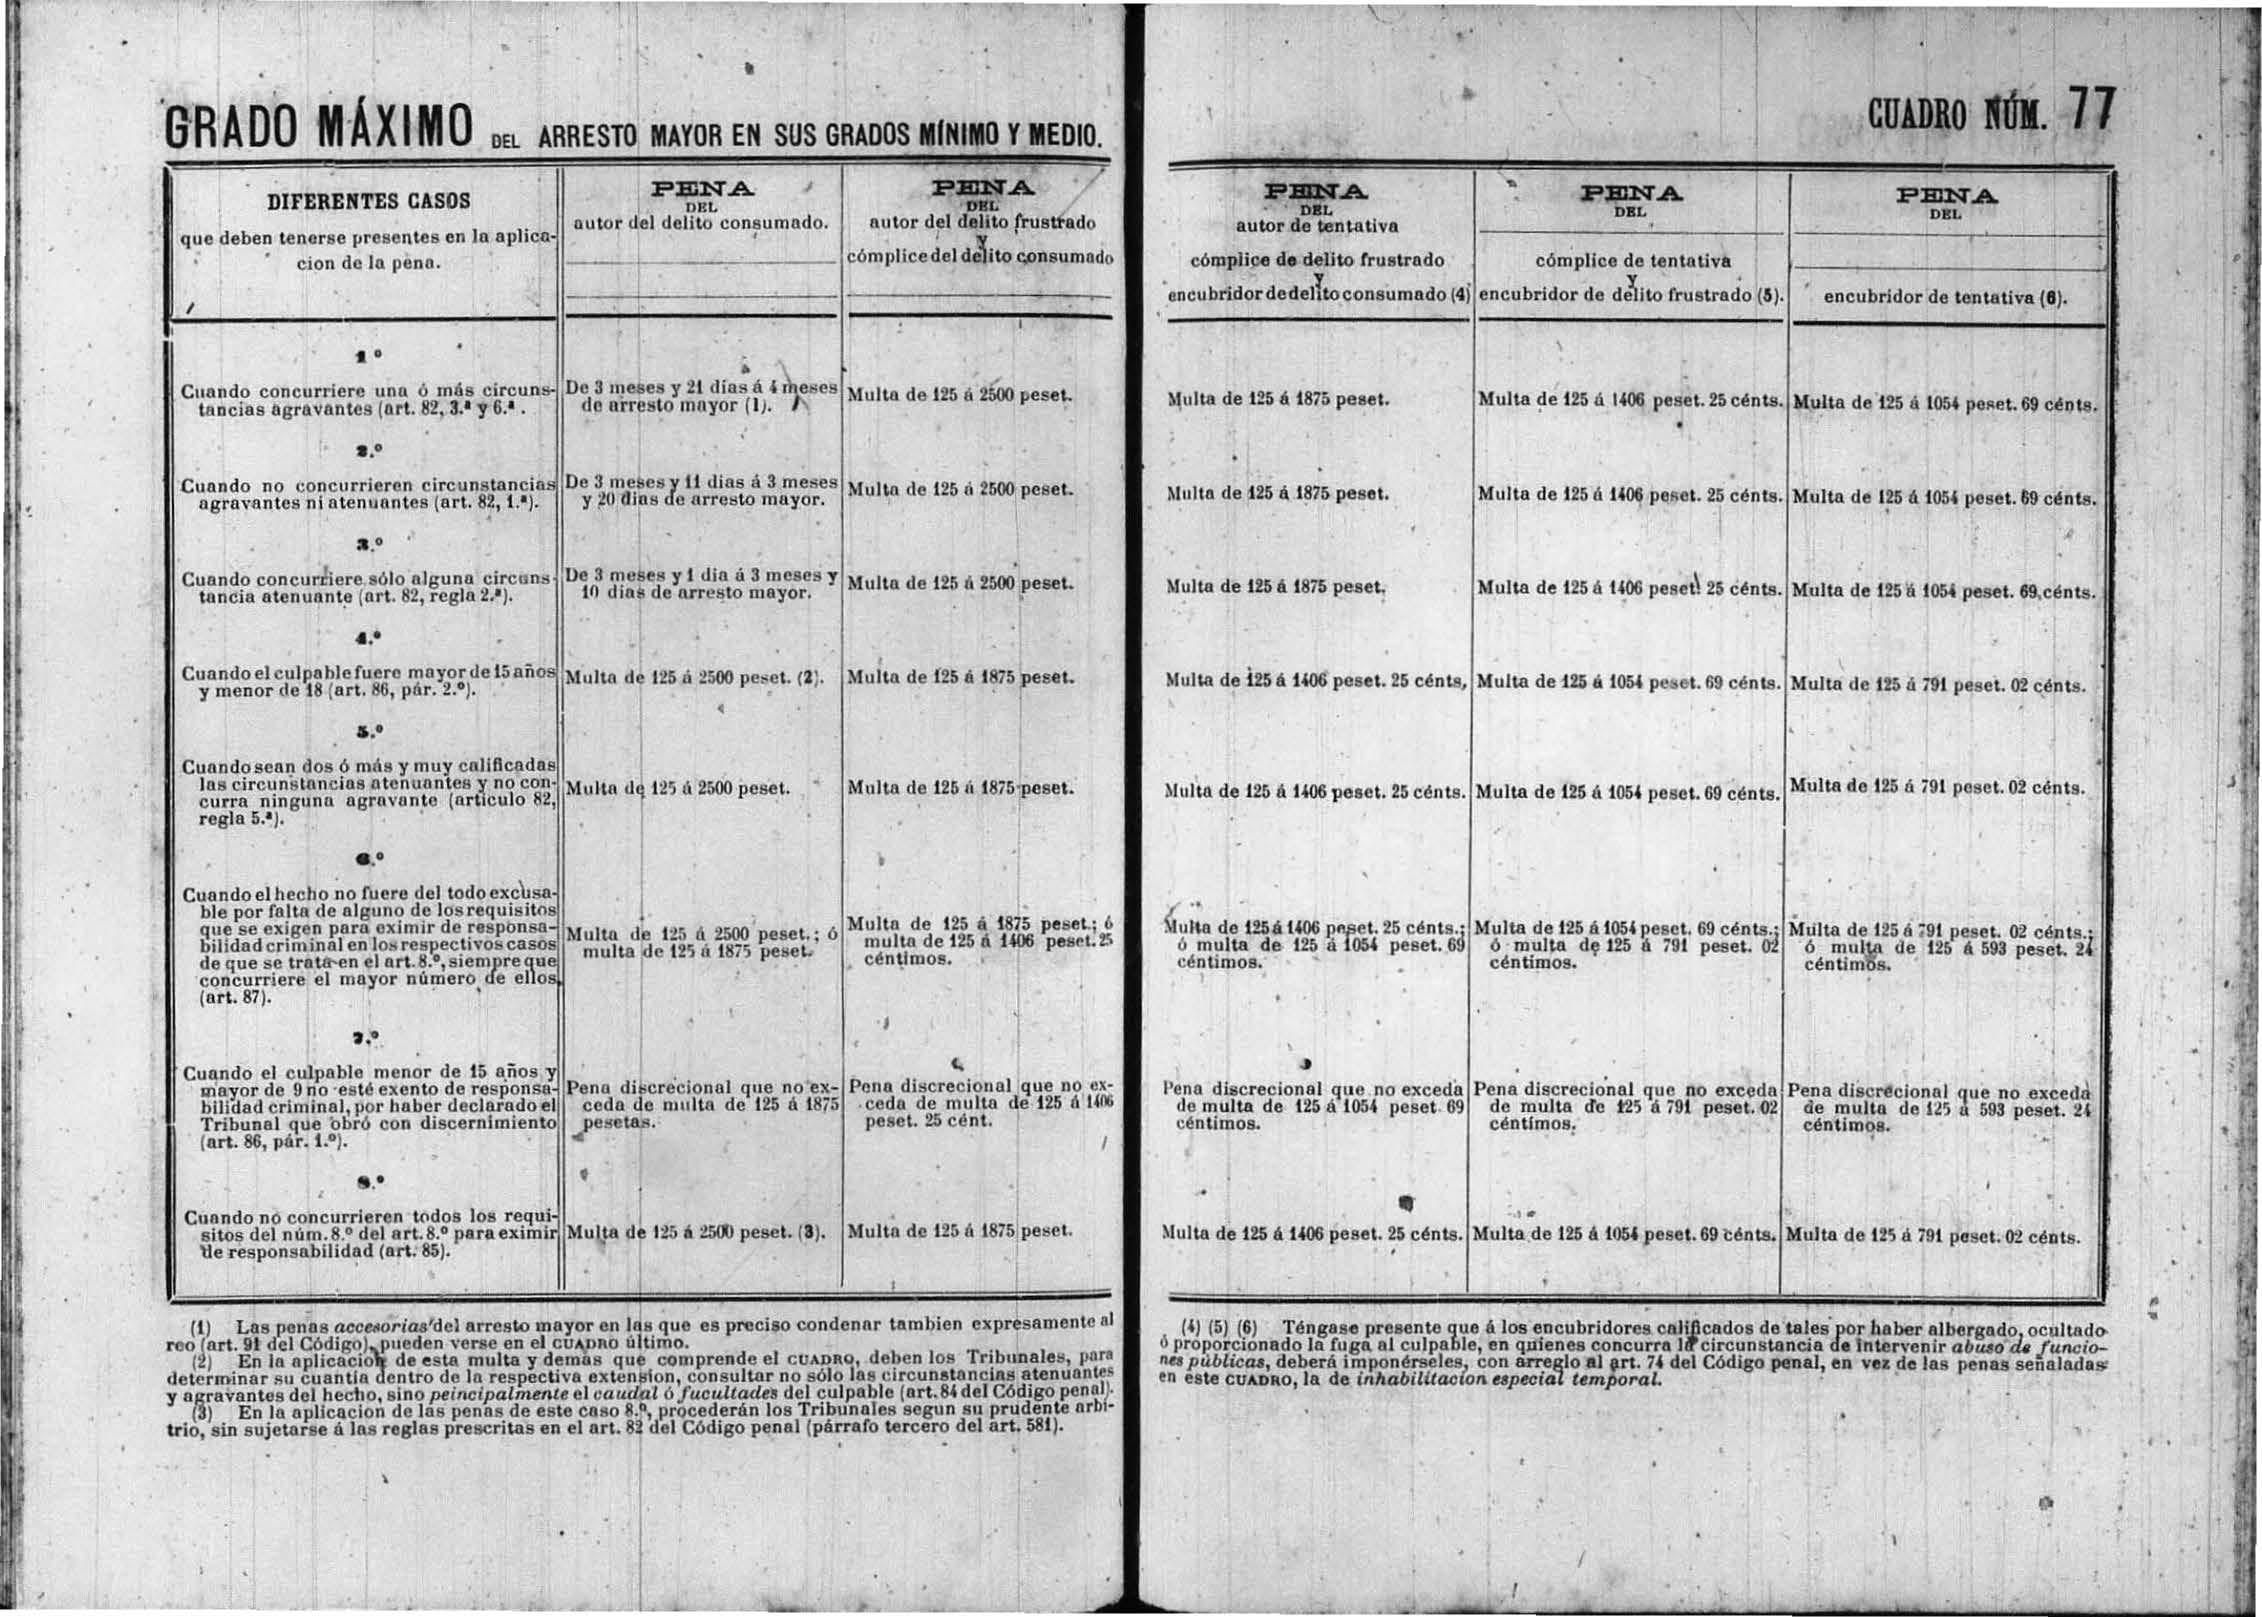 GRADO MÁXIMO DEL ARRESTO MAYOR EN SUS GRADOS MÍNIMO Y MEDIO.
DIFERENTES CASOS
que deben tenerse presentes en la aplica-
cion de la pena.
PENA
DEL
autor del delito consumado.
PENA
DEL
autor del delito frustrado
Y
cómplice del delito consumado
1.º
Cuando concurriere una ó más circuns-
tancias agravantes (art. 82, 3.ª y 6.ª .
De 3 meses y 21 días á 4 meses
de arresto mayor (1).
Multa de 125 á 2500 peset.
2.º
Cuando no concurrieren circunstancias
agravantes ni atenuantes (art. 82, 1.ª).
De 3 meses y 11 dias á 3 meses
y 20 dias de arresto mayor.
Multa de 125 á 2500 peset.
3.º
Cuando concurriere sólo alguna circuns-
tancia atenuante (art. 82, regla 2.ª).
De 3 meses y 1 dia á 3 meses y
10 dias de arresto mayor.
Multa de 125 á 2500 peset.
4.º
Cuando el culpable fuere mayor de 15 años
y menor de 18 (art. 86, pár. 2.º).
Multa de 125 á 2500 peset. (2).
Multa de 125 á 1875 peset.
5.º
Cuando sean dos ó más y muy calificadas
las circunstancias atenuantes y no con-
curra ninguna agravante (artículo 82,
regla 5.ª).
Multa de 125 á 2500 peset.
Multa de 125 á 1875 peset.
6.º
Cuando el hecho no fuere del todo excusa-
ble por falta de alguno de los requisitos
que se exigen para eximir de responsa-
bilidad criminal en los respectivos casos
de que se trata en el art. 8.º, siempre que
concurriere el mayor número de ellos
(art. 87).
Multa de 125 á 2500 peset.; ó
multa de 125 á 1875 peset.
Multa de 125 á 1875 peset.; ó
multa de 125 á 1406 peset. 25
céntimos.
7.º
Cuando el culpable menor de 15 años y
mayor de 9 no esté exento de responsa-
bilidad criminal, por haber declarado el
Tribunal que obró con discernimiento
(art. 86, pár. 1.º).
Pena discrecional que no ex-
ceda de multa de 125 á 1875
pesetas.
Pena discrecional que no ex-
ceda de multa de 125 á 1406
peset. 25 cént.
8.º
Cuando no concurrieren todos los requi-
sitos del núm. 8.º del art. 8.º para eximir
de responsabilidad (art. 85).
Multa de 125 á 2500 peset. (3).
Multa de 125 á 1875 peset.
(1) Las penas accesorias del arresto mayor en las que es preciso condenar tambien expresamente al
reo (art. 91 del Código), pueden verse en el CUADRO último.
(2) En la aplicacion de esta multa y demás que comprende el CUADRO, deben los Tribunales, para
determinar su cuantía dentro de la respectiva extension, consultar no sólo las circunstancias atenuantes
y agravantes del hecho, sino peincipalmente el caudal ó fucultades del culpable (art. 84 del Código penal).
(3) En la aplicacion de las penas de este caso 8.º, procederán los Tribunales segun su prudente arbi-
trio, sin sujetarse á las reglas prescritas en el art. 82 del Código penal (párrafo tercero del art. 581).
CUADRO NÚM. 77
PENA
DEL
autor de tentativa
cómplice de delito frustrado
Y
encubridor de delito consumado (4)
PENA
DEL
cómplice de tentativa
Y
encubridor de delito frustrado (5).
PENA
DEL
encubridor de tentativa (6).
Multa de 125 á 1875 peset.
Multa de 125 á 1406 peset. 25 cénts.
Multa de 125 á 1054 peset. 69 cénts.
Multa de 125 á 1875 peset.
Multa de 125 á 1406 peset. 25 cénts.
Multa de 125 á 1054 peset. 69 cénts.
Multa de 125 á 1875 peset.
Multa de 125 á 1406 peset. 25 cénts.
Multa de 125 á 1054 peset. 69 cénts.
Multa de 125 á 1406 peset. 25 cénts.
Multa de 125 á 1054 peset. 69 cénts.
Multa de 125 á 791 peset. 02 cénts.
Multa de 125 á 1406 peset. 25 cénts.
Multa de 125 á 1054 peset. 69 cénts.
Multa de 125 á 791 peset. 02 cénts.
Multa de 125 á 1406 peset. 25 cénts.;
ó multa de 125 á 1054 peset. 69
céntimos.
Multa de 125 á 1054 peset. 69 cénts.;
ó multa de 125 á 791 peset. 02
céntimos.
Multa de 125 á 791 peset. 02 cénts.;
ó multa de 125 á 593 peset. 24
céntimos.
Pena discrecional que no exceda
de multa de 125 á 1054 peset. 69
céntimos.
Pena discrecional que no exceda
de multa de 125 á 791 peset. 02
céntimos.
Pena discrecional que no exceda
de multa de 125 á 593 peset. 24
céntimos.
Multa de 125 á 1406 peset. 25 cénts.
Multa de 125 á 1054 peset. 69 cénts.
Multa de 125 á 791 peset. 02 cénts.
(4) (5) (6) Téngase presente que á los encubridores calificados de tales por haber albergado, ocultado
ó proporcionado la fuga al culpable, en quienes concurra la circunstancia de intervenir abuso de funcio-
nes públicas, deberá imponérseles, con arreglo al art. 74 del Código penal, en vez de las penas señaladas
en este CUADRO, la de inhabilitacion especial temporal.